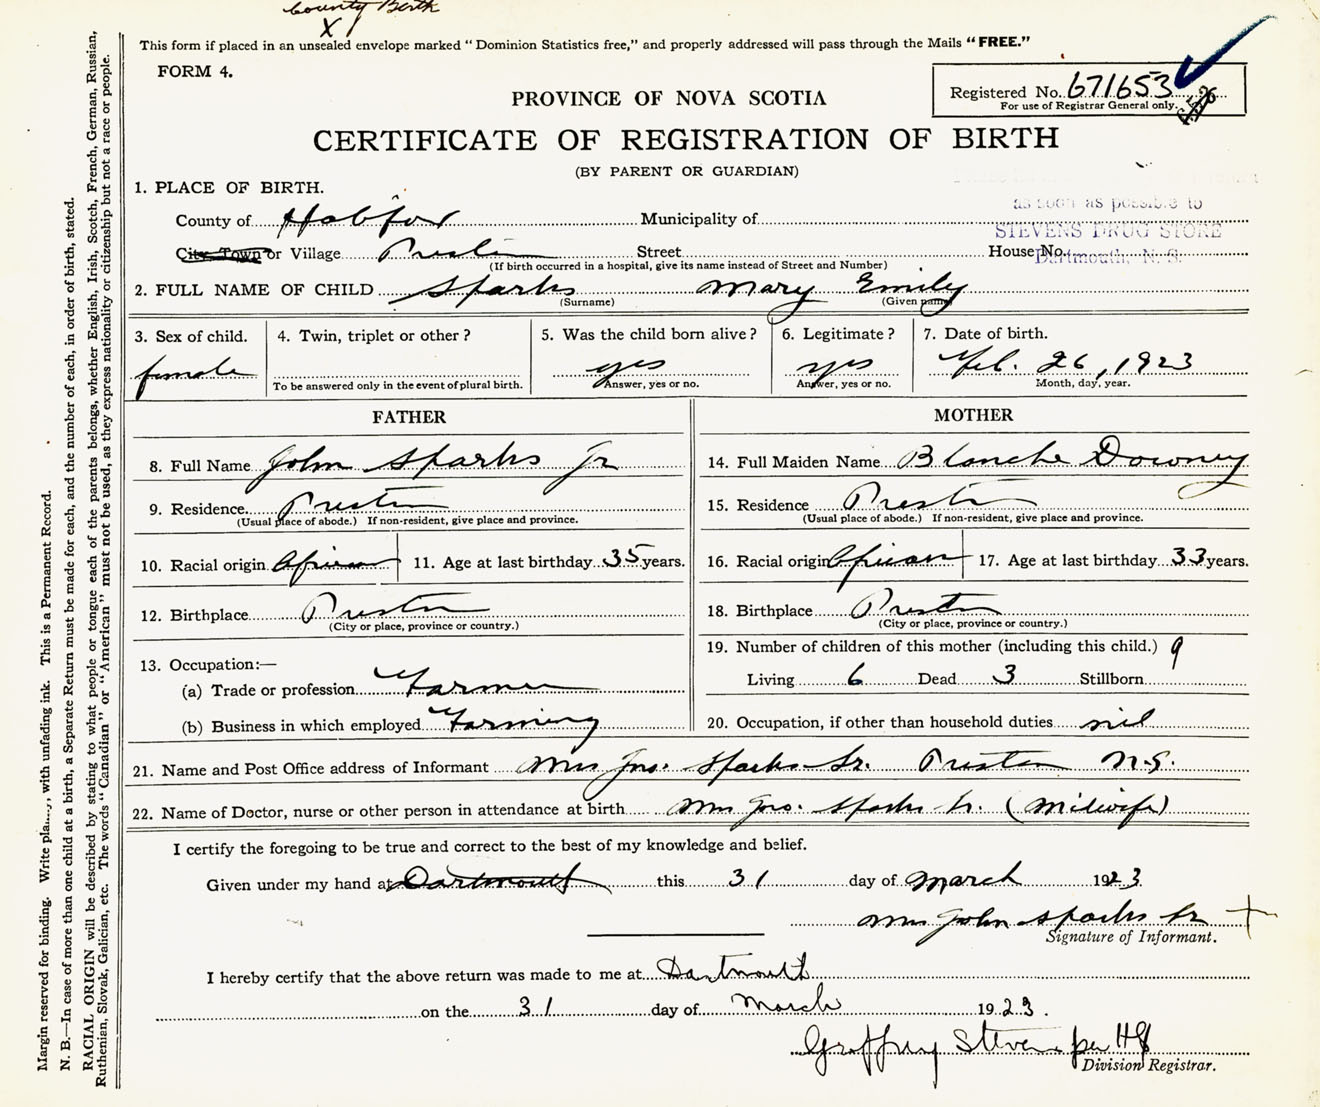 County Birth
X
This form if placed in an unsealed envelope marked "Dominion Statistics free," and properly addressed will pass through the Mails "FREE."
FORM 4.
Registered No. 671653
For use of Registrar General only.
PROVINCE OF NOVA SCOTIA
CERTIFICATE OF REGISTRATION OF BIRTH
(BY PARENT OR GUARDIAN)
1. PLACE OF BIRTH.
as soon as possible to
County of Halifax Municipality of
STEVENS DRUG STORE
City Town or Village Preston Street House No.
Dartmouth, N. S.
(If birth occurred in a hospital, give its name instead of Street and Number)
2. FULL NAME OF CHILD Sparks Mary Emily
(Surname) (Given name)
3. Sex of child. 4. Twin, triplet or other? 5. Was the child born alive? 6. Legitimate? 7. Date of birth.
female yes yes Feb. 26, 1923
To be answered only in the event of plural birth. Answer, yes or no. Answer, yes or no. Month, day, year.
FATHER
8. Full Name John Sparks Jr
9. Residence Preston
(Usual place of abode.) If non-resident, give place and province.
10. Racial origin African 11. Age at last birthday 35 years.
12. Birthplace Preston
(City or place, province or country.)
13. Occupation:—
(a) Trade or profession Farmer
(b) Business in which employed Farming
MOTHER
14. Full Maiden Name Blanche Downey
15. Residence Preston
(Usual place of abode.) If non-resident, give place and province.
16. Racial origin African 17. Age at last birthday 33 years.
18. Birthplace Preston
(City or place, province or country.)
19. Number of children of this mother (including this child.) 9
Living 6 Dead 3 Stillborn
20. Occupation, if other than household duties nil
21. Name and Post Office address of Informant Mrs Jno. Sparks Sr. Preston N.S.
22. Name of Doctor, nurse or other person in attendance at birth Mrs Jno. Sparks Sr. (Midwife)
I certify the foregoing to be true and correct to the best of my knowledge and belief.
Given under my hand at Dartmouth this 31 day of March 1923.
Mrs John Sparks Sr +
Signature of Informant.
I hereby certify that the above return was made to me at Dartmouth
on the 31 day of March 1923.
Geoffrey Stevens per HG
Division Registrar.
Margin reserved for binding. Write with unfading ink. This is a Permanent Record.
N. B.—In case of more than one child at a birth, a Separate Return must be made for each, and the number of each, in order of birth, stated.
RACIAL ORIGIN will be described by stating to what people or tongue each of the parents belongs, whether English, Irish, Scotch, French, German, Russian,
Ruthenian, Slovak, Galician, etc. The words "Canadian" or "American" must not be used, as they express nationality or citizenship but not a race or people.